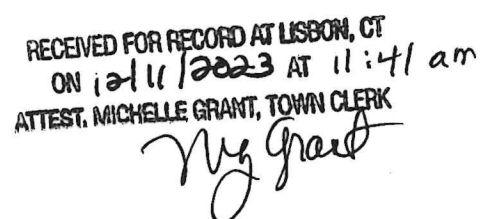 RECEIVED FOR RECORD AT LISBON, CT
ON 12/11/2023 AT 11:41 am
ATTEST. MICHELLE GRANT, TOWN CLERK
Mg Grant